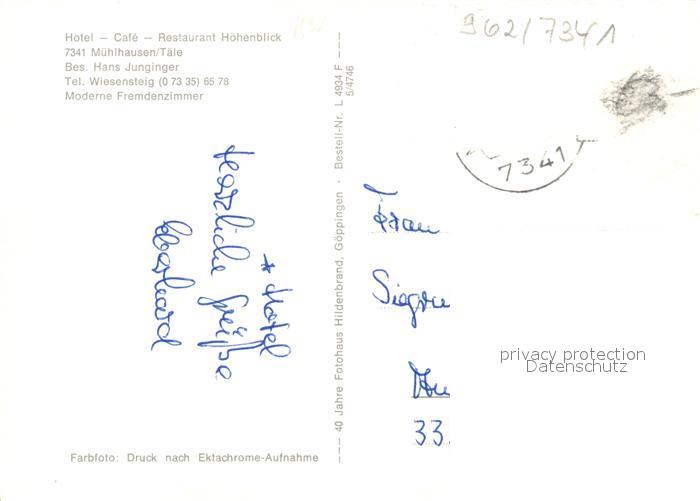 Hotel – Café – Restaurant Höhenblick
7341 Mühlhausen/Täle
Bes. Hans Junginger
Tel. Wiesensteig (0 73 35) 65 78
Moderne Fremdenzimmer
962/7341
7341
* Hotel
Herzliche Grüße
Eberhard
40 Jahre Fotohaus Hildenbrand, Göppingen · Bestell-Nr. L 4934 F
5/4746
Frau
33
privacy protection
Datenschutz
Farbfoto: Druck nach Ektachrome-Aufnahme